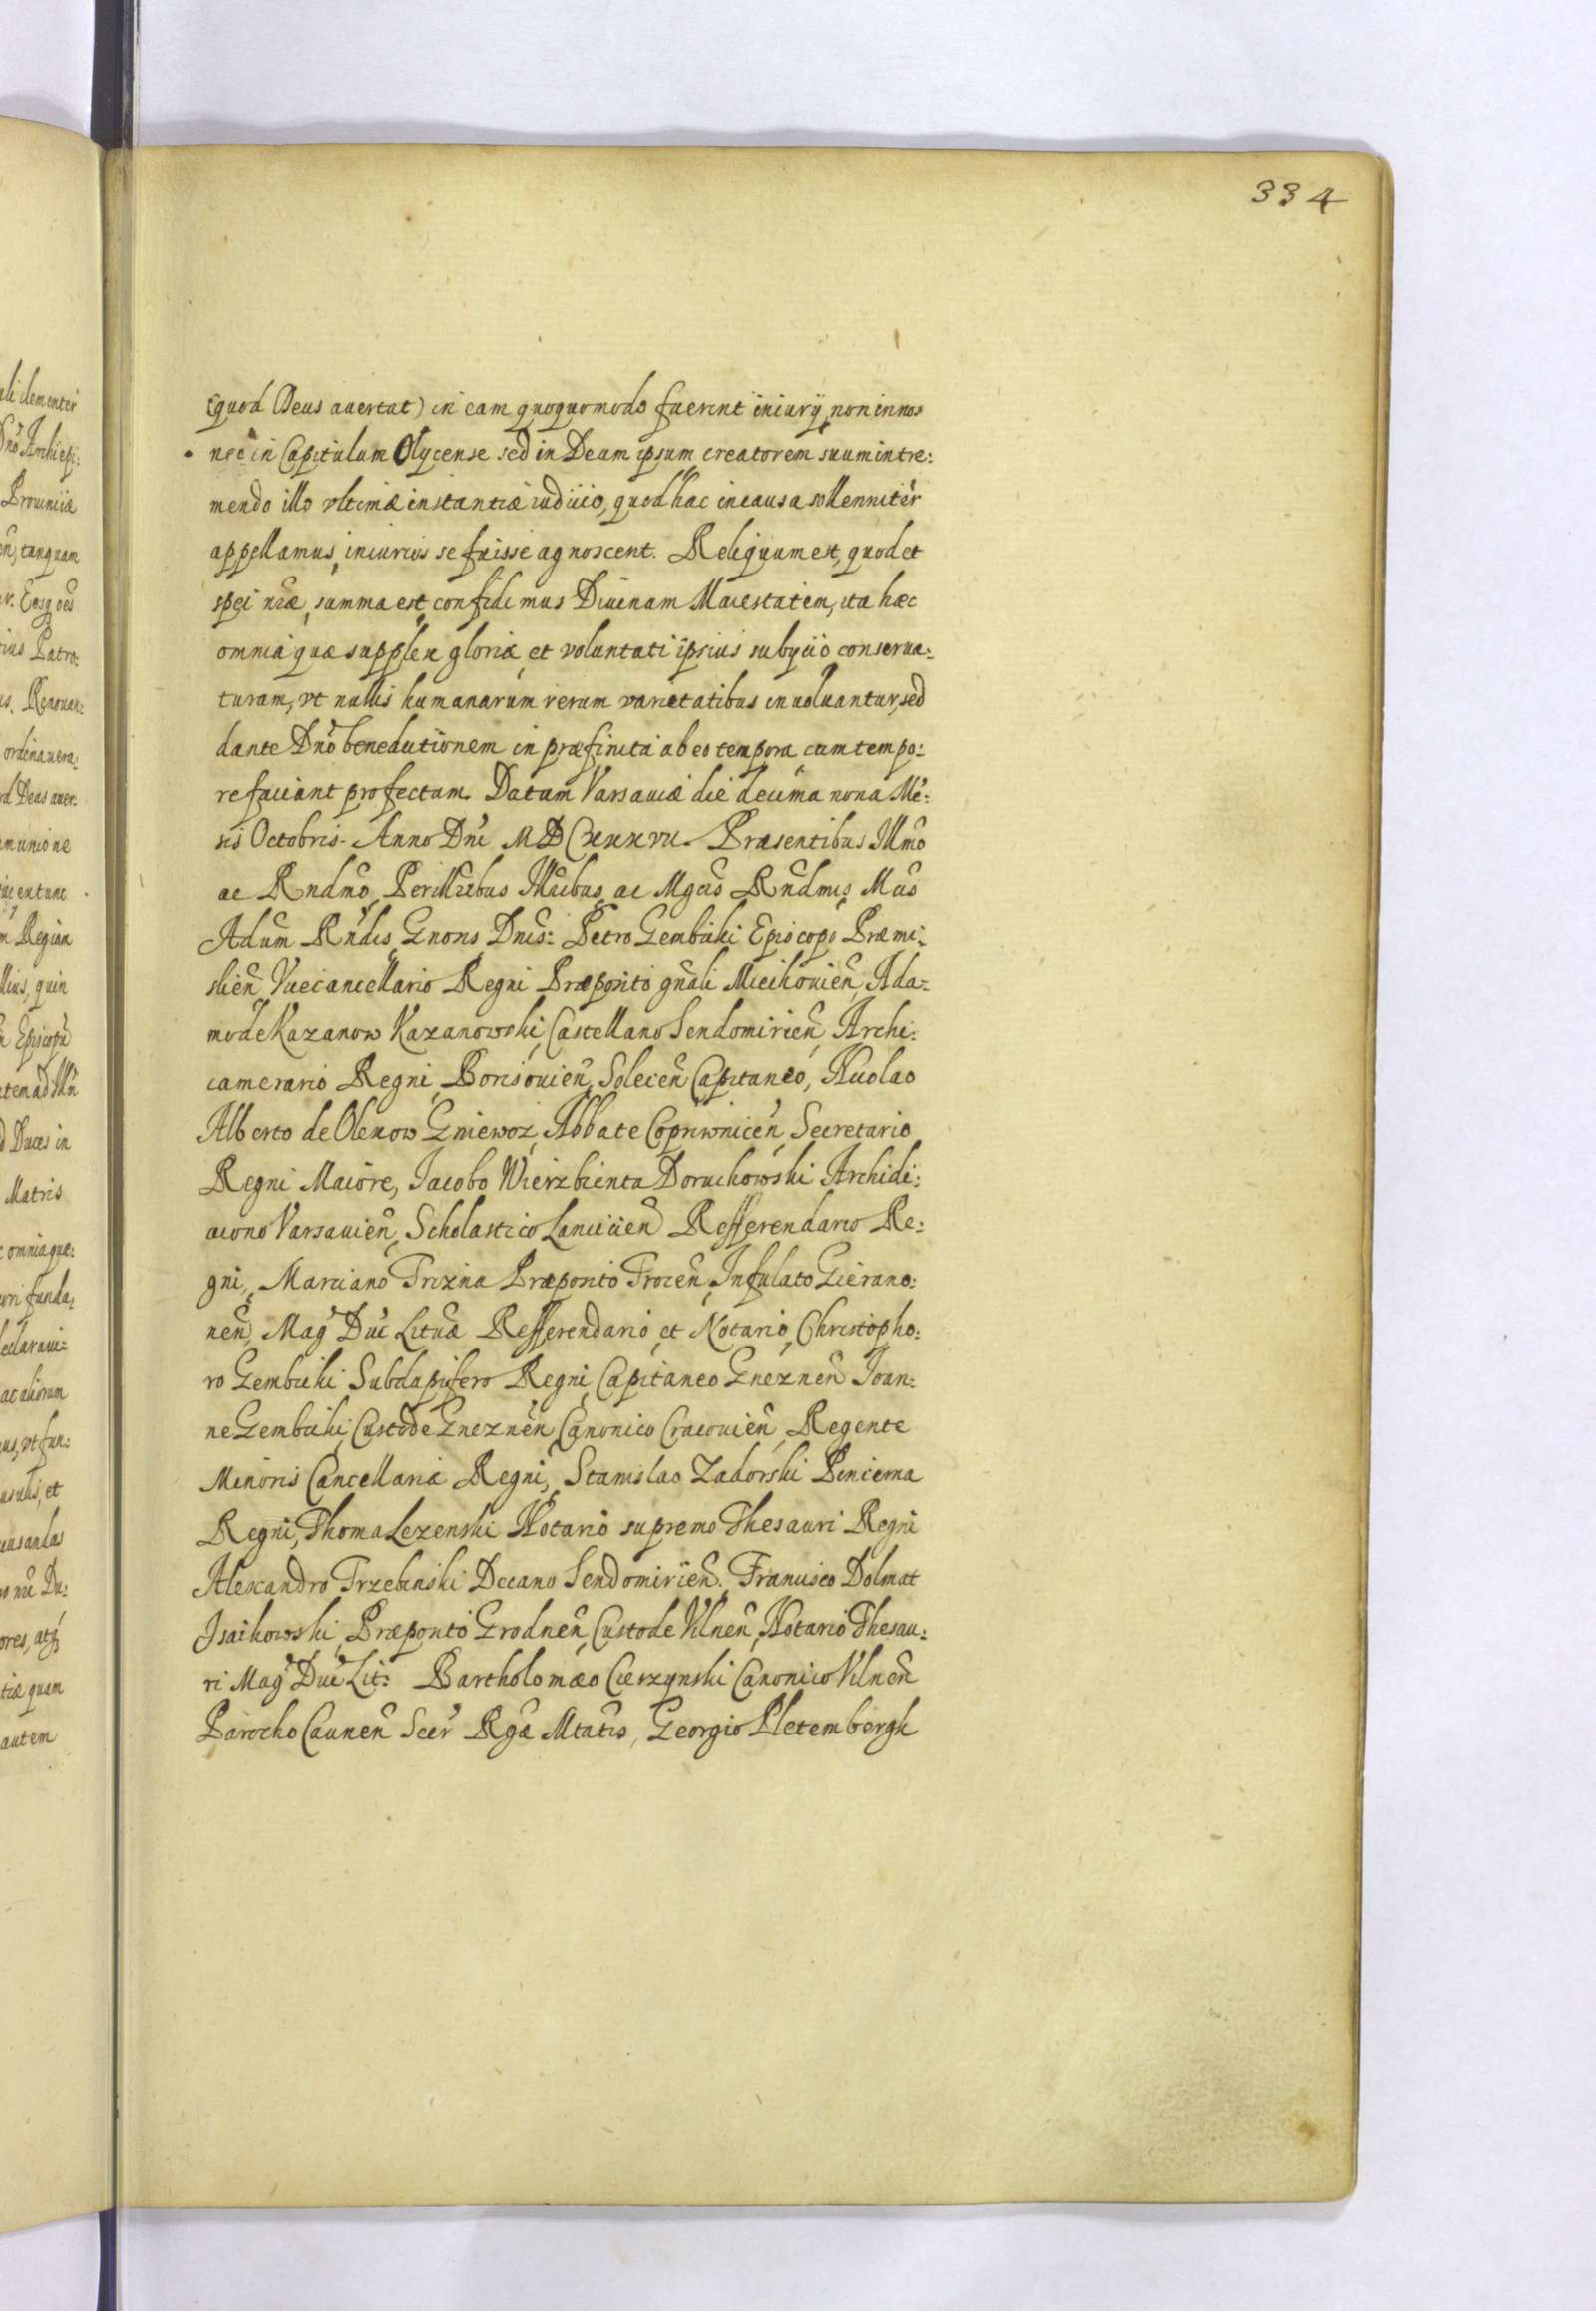 334
(quod Deus auertat) in eam quoquomodo fuerint iniurij non in nos
nec in Capitulum Olycense sed in Deum ipsum creatorem suum in tre:
mendo illo vltimæ instantiæ iudicio, quod hac in causa sollenniter
appellamus, iniurios se fuisse agnoscent. Reliquum est, quod et
spei nræ summa est confidimus Diuinam Maiestatem, ita hæc
omnia quæ supplex gloriæ et voluntati ipsius subycio conserua:
turam, vt nullis humanarum rerum varietatibus inuoluantur, sed
dante Dnō benedictionem in præfinita ab eo tempora cum tempo:
re faciant profectum. Datum Varsauiæ die decima nona Mē:
sis Octobris. Anno Dnī MDCXXXVII. Præsentibus Illmō
ac Rndmō, Perillribus Illribus, ac Mgcis Rndmis Mcis
Adum Rndis Gnōsis Dnis: Petro Gembicki Episcopo Præmi:
slien̄ Vicecancellario Regni Præposito gn̄ali Miechouien̄, Ada:
mo de Kazanow Kazanowski, Castellano Sendomirien̄, Archi:
camerario Regni, Borisouien̄, Solecen̄ Capitaneo, Nicolao
Alberto de Olexow Gniewoz, Abbate Copriwnicen̄, Secretario
Regni Maiore, Iacobo Wierzbienta Doruchowski Archidi:
acono Varsauien̄, Scholastico Lancicien̄ Refferendario Re:
gni, Marciano Trizna Præposito Trocen̄, Infulato Gierano:
nen̄, Mag̃ Duc̃ Lituæ Refferendario et Notario, Christopho:
ro Gembicki Subdapifero Regni, Capitaneo Gneznen̄ Ioan:
ne Gembicki, Custode Gneznen̄, Canonico Cracouien̄, Regente
Minoris Cancellariæ Regni, Stanislao Zadorski Pincerna
Regni, Thoma Lezenski Notario supremo Thesauri Regni
Alexandro Trzebinski Decano Sendomirien̄. Francisco Dolmat
Isaikowski, Præposito Grodnen̄, Custode Vilnen̄, Notario Thesau:
ri Mag̃ Duc̃ Lit: Bartholomæo Cierzynski Canonico Vilnen̄
Parocho Caunen̄ Secr̄ Rgæ Mtatis, Georgio Pletembergk